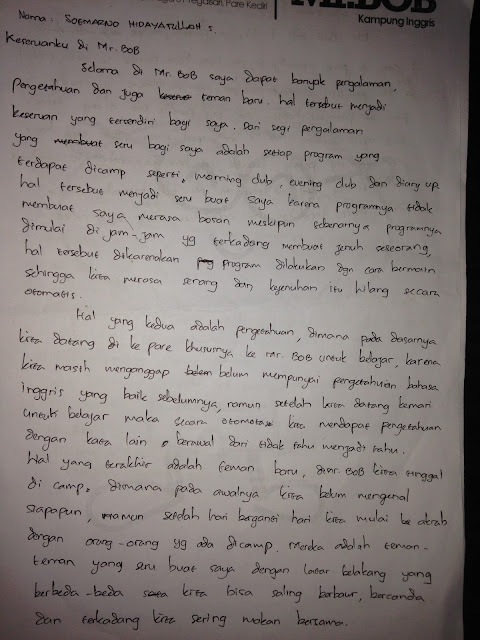 Tegalsari, Pare Kediri
Mr.BOB
Kampung Inggris
Nama : SOEMARNO HIDAYATULLAH S.
Keseruanku di Mr. BOB
Selama di Mr. BOB saya dapat banyak pengalaman,
Pengetahuan dan juga teman baru. hal tersebut menjadi
keseruan yang tersendiri bagi saya. Dari segi pengalaman
yang membuat seru bagi saya adalah setiap program yang
terdapat dicamp seperti, morning club, evening club dan diary up
hal tersebut menjadi seru buat saya karena programnya tidak
membuat saya merasa bosan meskipun sebenarnya programnya
dimulai di jam-jam yg terkadang membuat jenuh seseorang,
hal tersebut dikarenakan program dilakukan dgn cara bermain
sehingga kita merasa senang dan kejenuhan itu hilang secara
otomatis.
Hal yang kedua adalah pengetahuan, dimana pada dasarnya
kita datang di ke pare khususnya ke Mr. BOB untuk belajar, karena
kita masih menganggap belum belum mempunyai pengetahuan bahasa
inggris yang baik sebelumnya, namun setelah kita datang kemari
untuk belajar maka secara otomatis kita mendapat pengetahuan
dengan kata lain berawal dari tidak tahu menjadi tahu.
Hal yang terakhir adalah teman baru, di mr. BOB kita tinggal
di camp, dimana pada awalnya kita belum mengenal
siapapun, namun setelah hari berganti hari kita mulai ke akrab
dengan orang-orang yg ada dicamp. Mereka adalah teman-
teman yang seru buat saya dengan latar belakang yang
berbeda-beda kita bisa saling berbaur, bercanda
dan terkadang kita sering makan bersama.